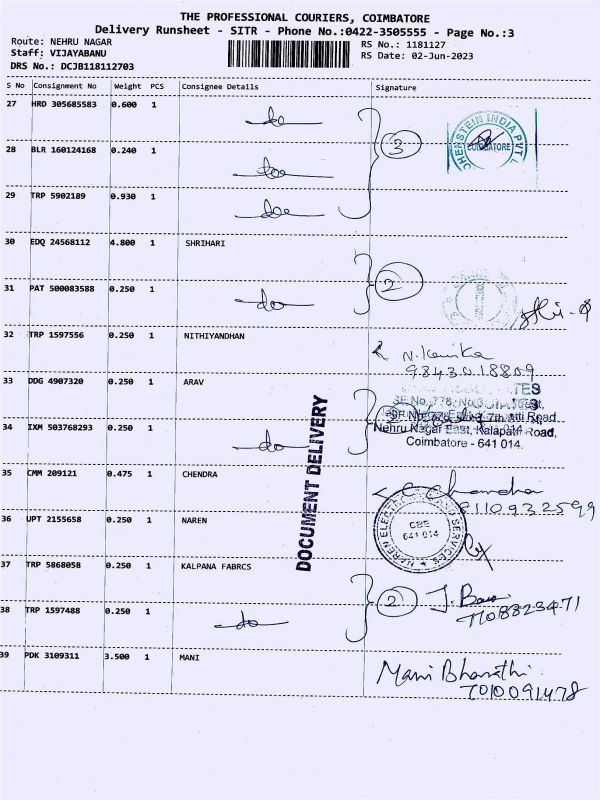 THE PROFESSIONAL COURIERS, COIMBATORE
Delivery Runsheet - SITR - Phone No.:0422-3505555 - Page No.:3
Route: NEHRU NAGAR
Staff: VIJAYABANU
DRS No.: DCJB118112703
RS No.: 1181127
RS Date: 02-Jun-2023
S No Consignment No Weight PCS Consignee Details Signature
27 HRD 305685583 0.600 1 do
3
INDIA PVT
COIMBATORE
28 BLR 160124168 0.240 1 do
29 TRP 5902189 0.930 1 do
30 EDQ 24568112 4.800 1 SHRIHARI
2
31 PAT 500083588 0.250 1 do
32 TRP 1597556 0.250 1 NITHIYANDHAN
33 DDG 4907320 0.250 1 ARAV
Nehru Nagar East, Kalapatti Road,
Coimbatore - 641 014.
34 IXM 503768293 0.250 1 do
DOCUMENT DELIVERY
35 CMM 209121 0.475 1 CHENDRA
36 UPT 2155658 0.250 1 NAREN
CBE
641 014
37 TRP 5868058 0.250 1 KALPANA FABRCS
2
38 TRP 1597488 0.250 1 do
39 PDK 3109311 3.500 1 MANI
Mani Bharathi
7010091478